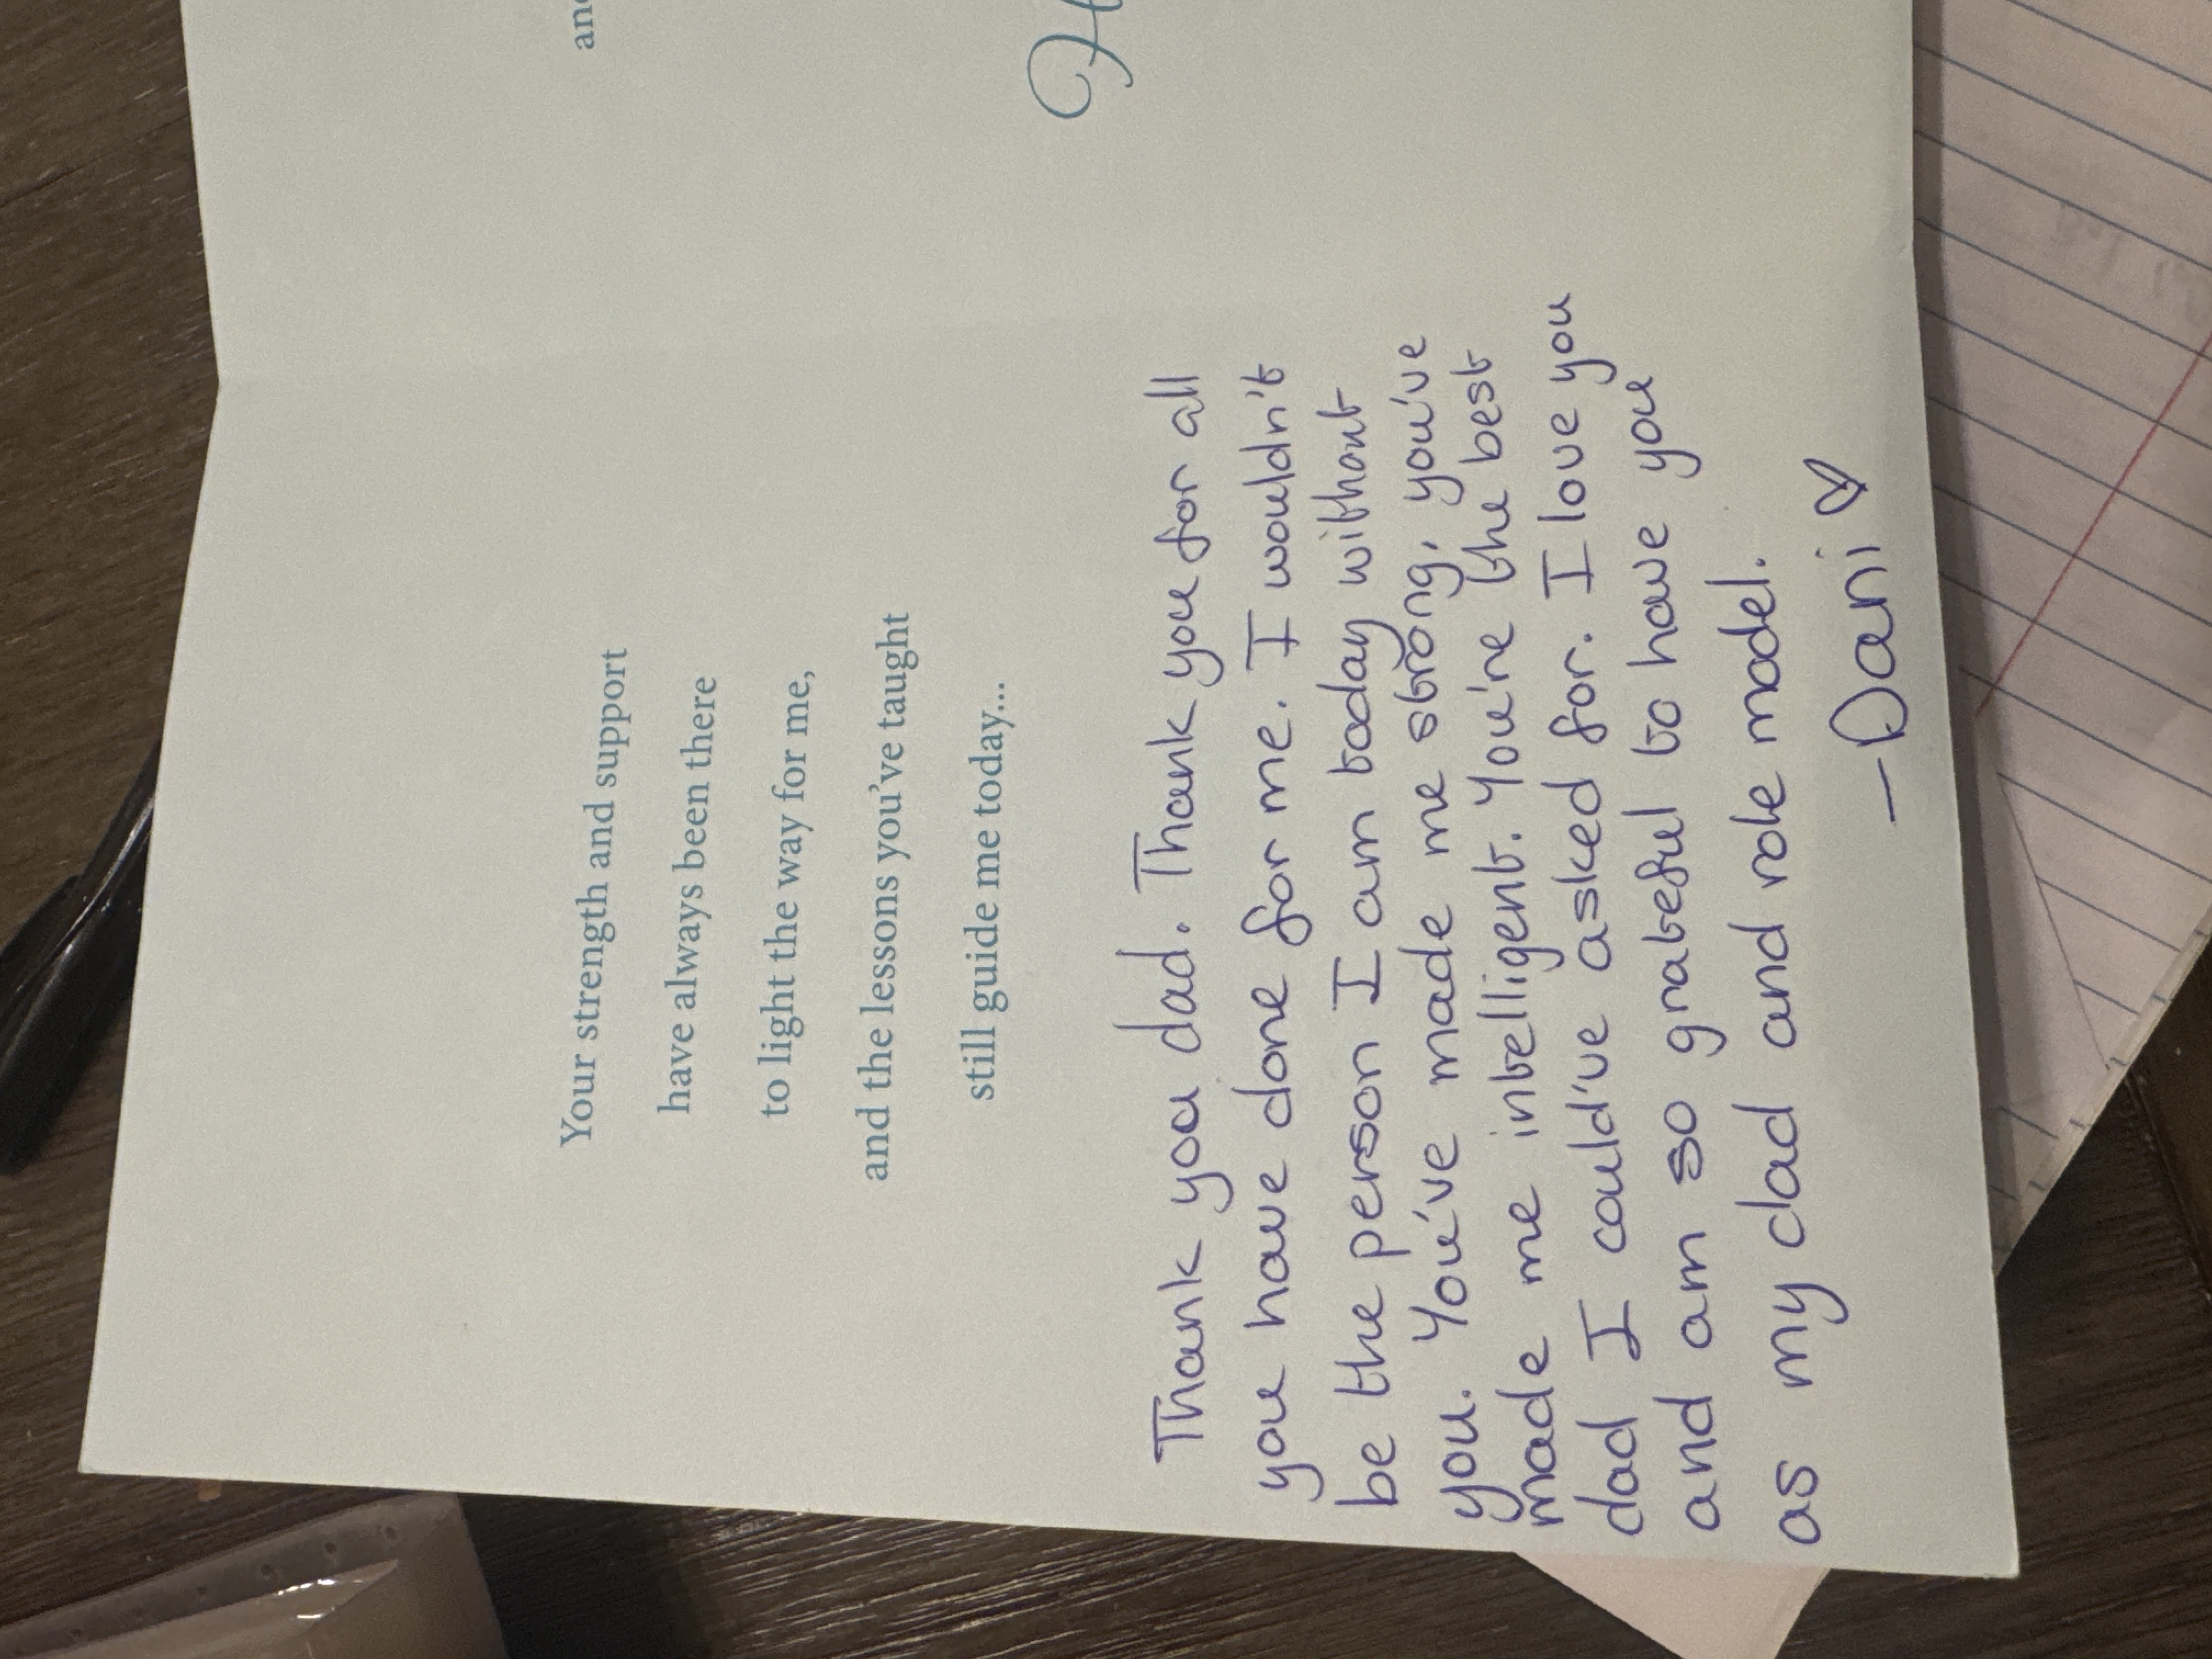 Your strength and support
have always been there
to light the way for me,
and the lessons you've taught
still guide me today...
Thank you dad. Thank you for all
you have done for me. I wouldn't
be the person I am today without
you. You've made me strong, you've
made me intelligent. You're the best
dad I could've asked for. I love you
and am so grateful to have you
as my dad and role model.
—Dani ♡